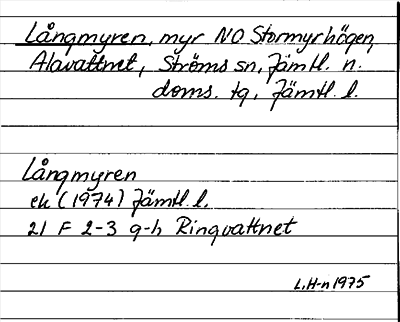 Långmyren, myr NO Stormyrhögen,
Alavattnet, Ströms sn, Jämtl. n.
doms. tg, Jämtl. l.
Långmyren
ek (1974) Jämtl. l.
21 F 2-3 g-h Ringvattnet
L.H-n 1975